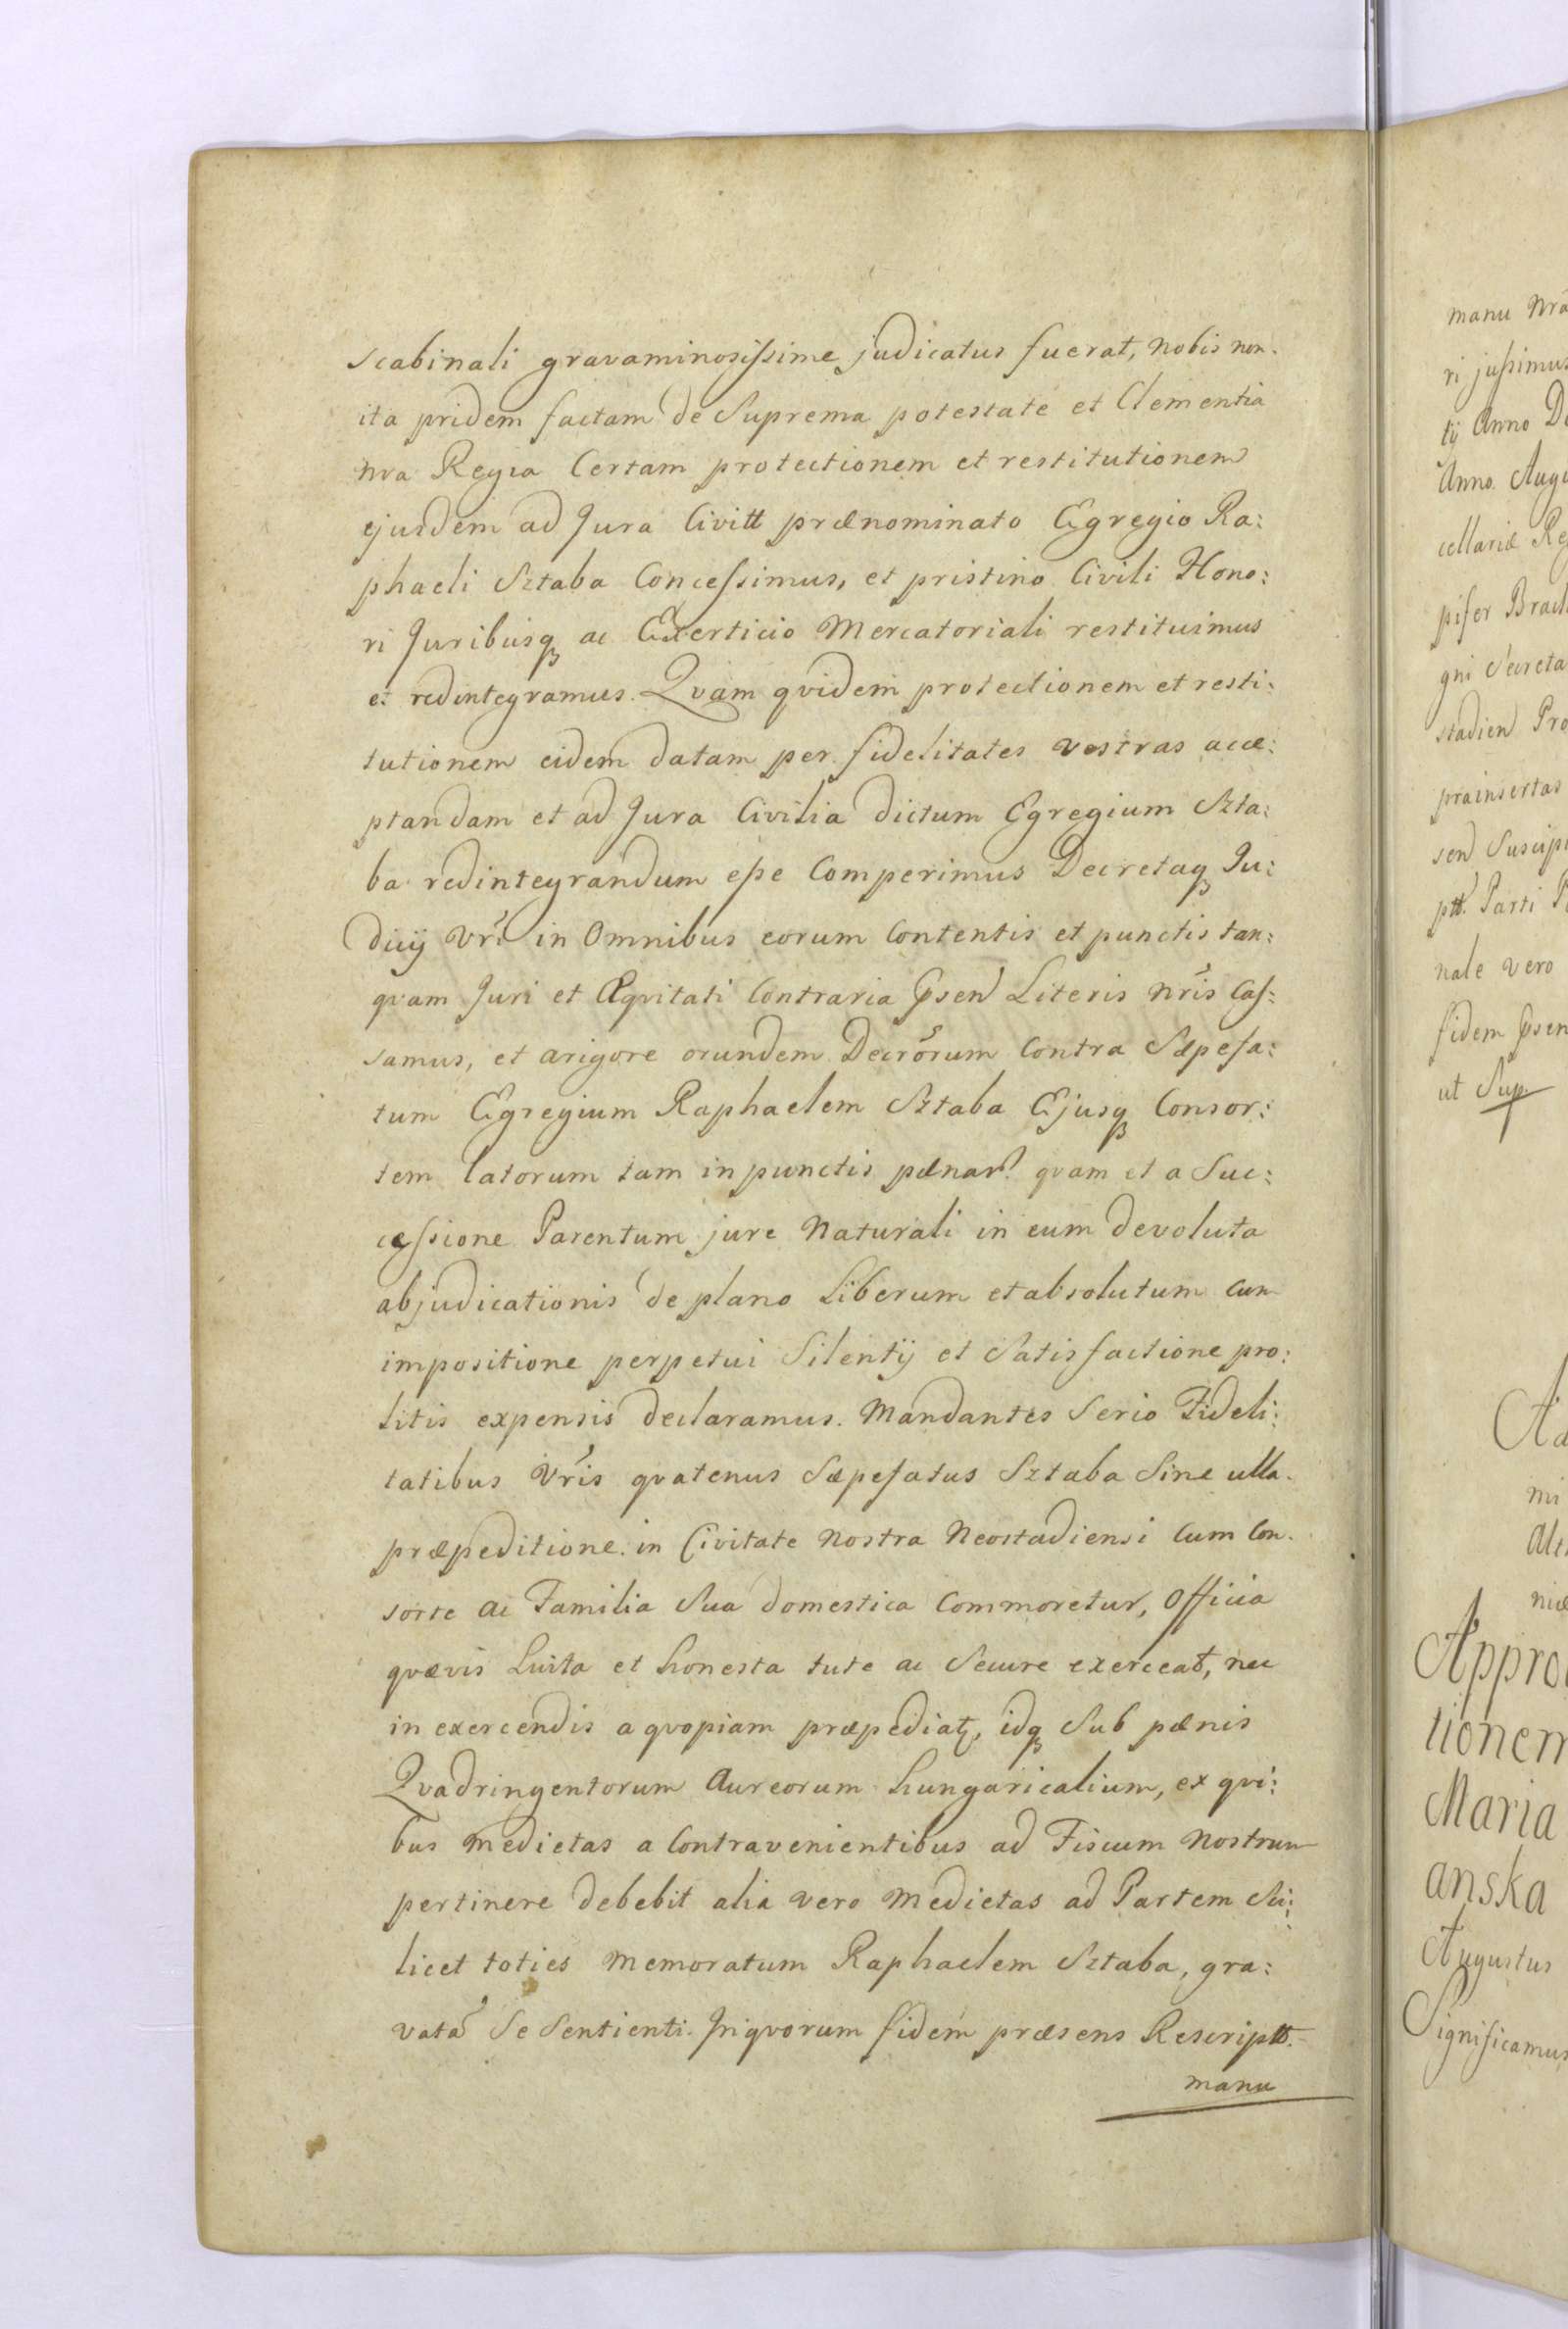 scabinali gravaminosissime judicatus fuerat, nobis non
ita pridem factam de Suprema potestate et Clementia
nra Regia Certam protectionem et restitutionem
ejusdem ad Jura Civitt prænominato Egregio Ra:
phaeli Sztaba Concessimus, et pristino Civili Hono:
ri Juribusq ac Exerticio Mercatoriali restituimus
et redintegramus. Qvam qvidem protectionem et resti:
tutionem eidem datam per fidelitates vestras acce:
ptandam et ad Jura Civilia dictum Egregium Szta:
ba redintegrandum esse Comperimus Decretaq Ju:
dicij Vri in Omnibus eorum Contentis et punctis tan:
qvam Juri et Æqvitati Contraria Psen Literis nris Cas:
samus, et arigore orundem Decrorum Contra Sæpefa:
tum Egregium Raphaelem Sztaba Ejusq Consor:
tem latorum tam in punctis pænar qvam et a Suc:
cessione Parentum jure Naturali in eum devoluta
abjudicationis de plano Liberum et absolutum cum
impositione perpetui Silentij et Satisfactione pro:
litis expensis declaramus. Mandantes Serio Fideli:
tatibus Vris qvatenus Sæpefatus Sztaba Sine ulla
præpeditione in Civitate Nostra Neostadiensi Cum Con
sorte ac Familia Sua domestica Commoretur, Officia
qvævis Licita et honesta tute ac Secure exerceat, nec
in exercendis a qvopiam præpediat, idq Sub pænis
Qvadringentorum Aureorum hungaricalium, ex qvi:
bus medietas a Contravenientibus ad Fiscum Nostrum
pertinere debebit alia vero medietas ad Partem Sci:
licet toties memoratum Raphaelem Sztaba, gra:
vata Se Sentienti. Inqvorum fidem præsens Rescriptt.
manu
manu nra
ri jussimus
tij Anno D
Anno. Aug
cellariæ Re
pifer Bracl
gni Secreta
stadien Pro
præinsertas
sen Suscipi
ptt. Parti P
nale vero
fidem Psen
ut Sup.
mi
niæ
Appro
tionem
Maria
anska
Augustus
Significamus